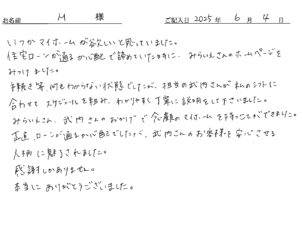 お名前 M 様 ご記入日 2025年 6月 4日
いつかマイホームが欲しいと思っていました。
住宅ローンが通るか心配で諦めていたときに、みらいえさんのホームページを
みつけました。
手続き等何もわからない状態でしたが、担当の武内さんが私のシフトに
合わせてスケジュールを組み、わかりやすく丁寧に説明をして下さいました。
みらいえさん、武内さんのおかげで念願のマイホームを持つことができました。
正直ローンが通るか心配でしたが、武内さんのお客様を安心させる
人柄に魅了されました。
感謝しかありません。
本当にありがとうございました。